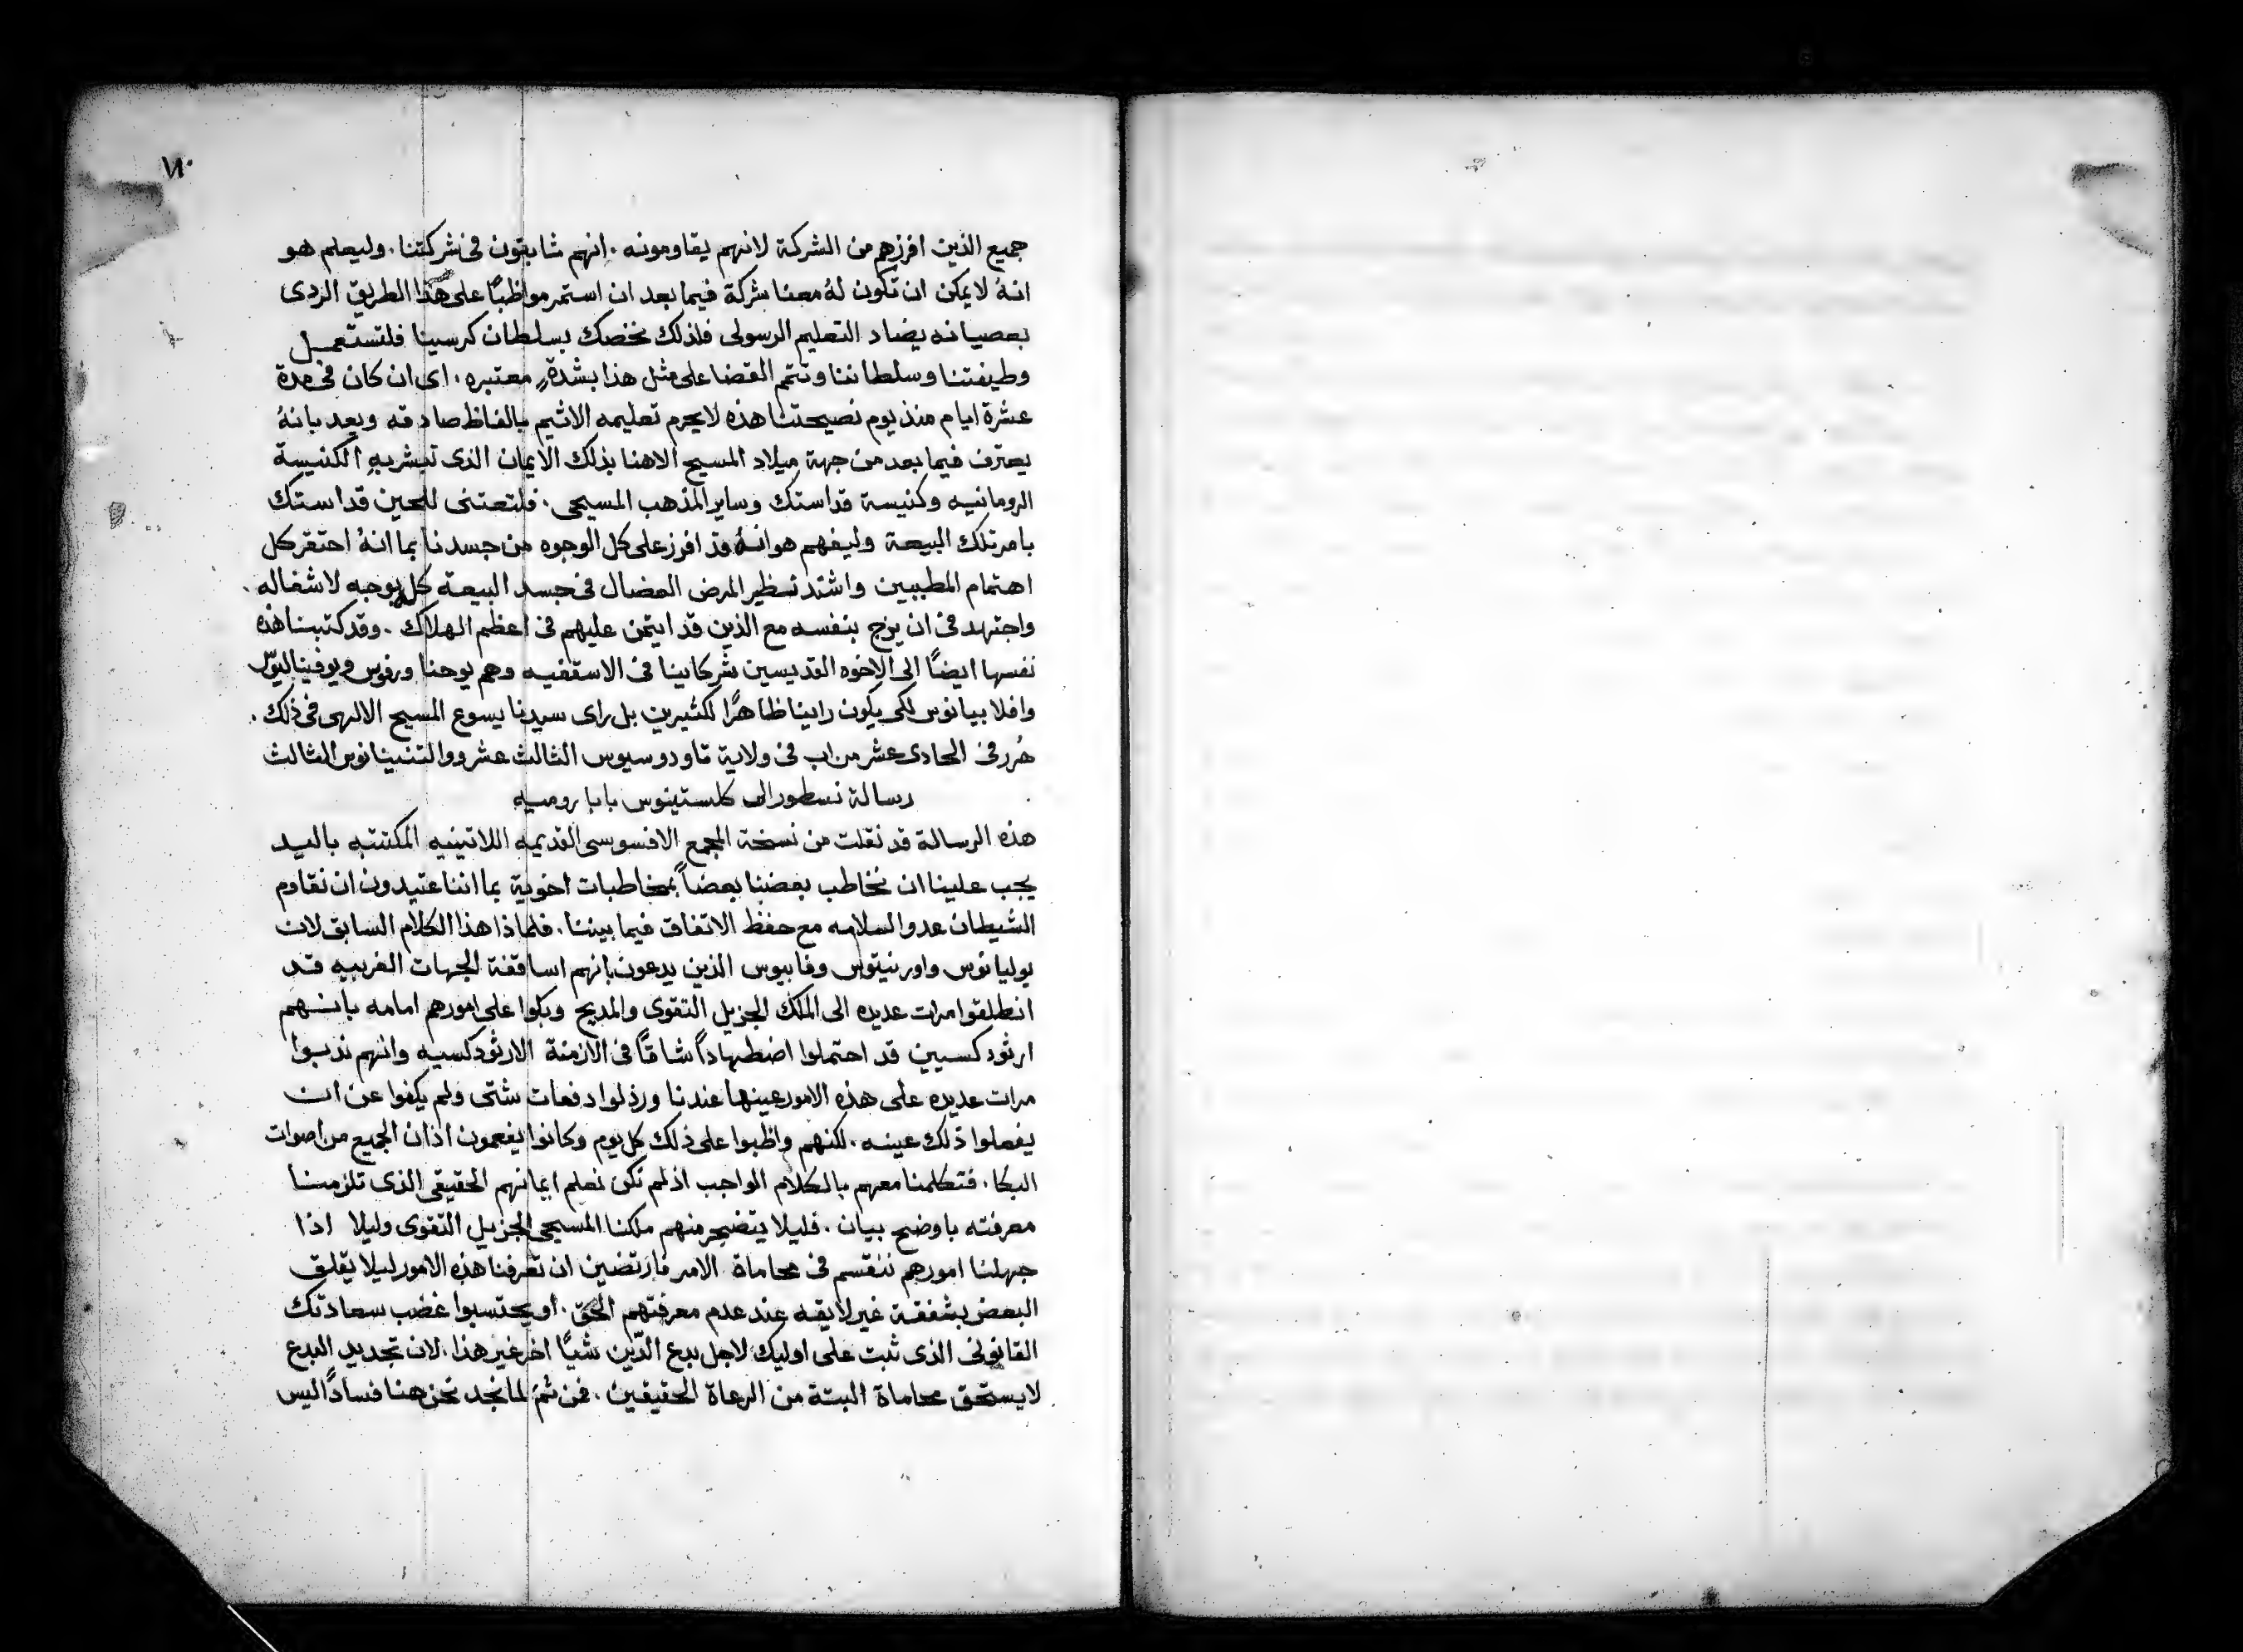 جميع الذين افرزهم من الشركة لانهم يقاومونه. انهم شابقون فى شركتنا. وليعلم هو
انهُ لا يمكن ان تكون لهُ معنا شركة فيما بعد ان استمر مواظبًا على هذا الطريق الردى
بعصيانه يضاد التعليم الرسولى فلذلك نخصك بسلطان كرسينا فلتستعمل
وظيفتنا وسلطاننا وتتم القضا على مثل هذا بشدةٍ معتبره. اى ان كان فى مدة
عشرة ايام منذ يوم نصيحتنا هذه لا يحرم تعليمه الاثيم بالفاظ صادقه ويعد بانهُ
يعترف فيما بعد من جهة ميلاد المسيح الاهنا بذلك الايمان الذى تبشر بهِ الكنيسة
الرومانيه وكنيسة قداستك وساير المذهب المسيحى. فلتعتنى للحين قداستك
بامر تلك البيعة وليفهم هو انهُ قد افرز على كل الوجوه من جسدنا بما انهُ احتقر كل
اهتمام المطببين واشتد نظير المرض العضال فى جسد البيعة كلها بوجبه لاشغاله.
واجتهد فى ان يزج بنفسه مع الذين قد ايتمن عليهم فى اعظم الهلاك. وقد كتبنا هذه
نفسها ايضًا الى الاخوه القديسين شركاينا فى الاسقفيه وهم يوحنا ورفوس ويوفيناليوس
وافلابيانوس لكى يكون راينا ظاهرًا لكثيرين بل راى سيدنا يسوع المسيح الالهى فى ذلك.
حُرر فى الحادى عشر من اب فى ولاية تاودوسيوس الثالث عشر ووالنتينيانوس الثالث
رسالة نسطور الى كلستينوس بابا روميه
هذه الرسالة قد نقلت من نسخة المجمع الافسوسى القديمه اللاتينيه المكتتبه باليد
يجب علينا ان نخاطب بعضنا بعضاً بمخاطبات اخوية بما اننا عتيدون ان نقاوم
الشيطان عدو السلامه مع حفظ الاتفاق فيما بيننا. فلماذا هذا الكلام السابق لان
يوليانوس واورنيتوس وفابيوس الذين يدعون بانهم اساقفة الجهات الغربيه قد
انطلقوا مرات عديده الى الملك الجزيل التقوى والمديح وبكوا على امورهم امامه بانهم
ارثودكسيين قد احتملوا اضطهاداً شاقاً فى الازمنة الارثودكسيه وانهم ندبوا
مرات عديده على هذه الامور عينها عندنا ورذلوا دفعات شتى ولم يكفوا عن ان
يفعلوا ذلك عينه. لكنهم واظبوا على ذلك كل يوم وكانوا يفعمون اذان الجميع من اصوات
البكا. فتكلمنا معهم بالكلام الواجب اذ لم نكن نعلم ايمانهم الحقيقى الذى تلزمنا
معرفته باوضح بيان. فليلا يتضجر منهم ملكنا المسيحى الجزيل التقوى وليلا اذا
جهلنا امورهم ننقسم فى محاماة الامر فارتضين ان تعرفنا هذه الامور ليلا يقلق
البعض بشفقة غير لايقه عند عدم معرفتهم الحق. او يحتسبوا غضب سعادتك
القانونى الذى ثبت على اوليك لاجل بدع الدين شيًا اخر غير هذا. لان تجديد البدع
لا يستحق محاماة البتة من الرعاة الحقيقين. فمن ثم لما نجد نحن هنا فسادًا ليس